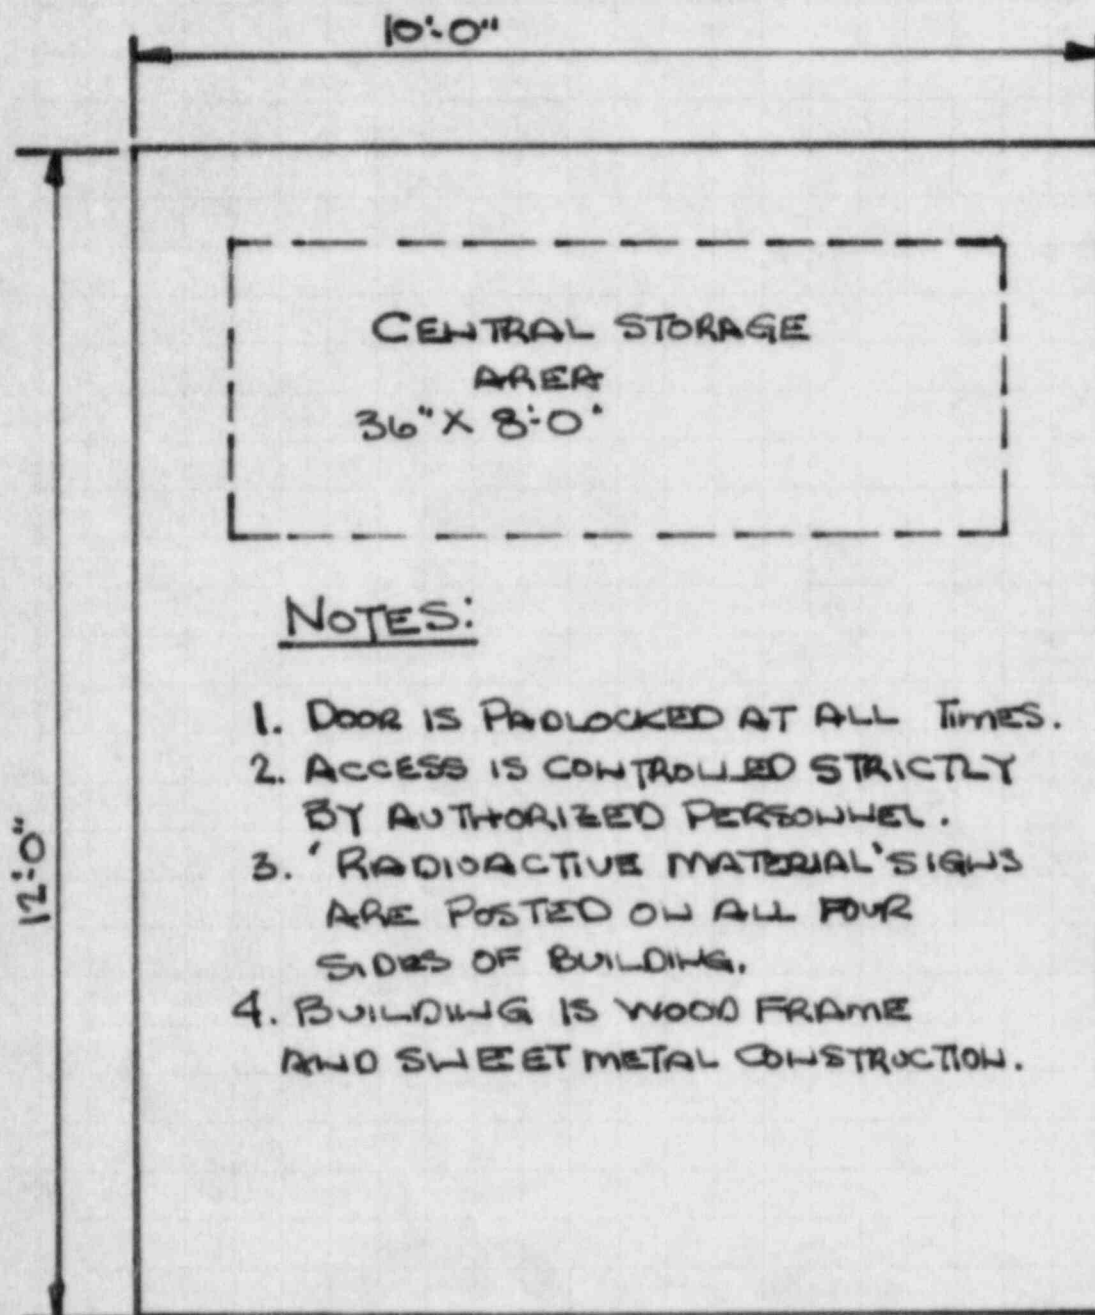 10'-0"
CENTRAL STORAGE
AREA
36" X 8'-0"
12'-0"
NOTES:
1. DOOR IS PADLOCKED AT ALL TIMES.
2. ACCESS IS CONTROLLED STRICTLY
BY AUTHORIZED PERSONNEL.
3. 'RADIOACTIVE MATERIAL' SIGNS
ARE POSTED ON ALL FOUR
SIDES OF BUILDING.
4. BUILDING IS WOOD FRAME
AND SHEET METAL CONSTRUCTION.